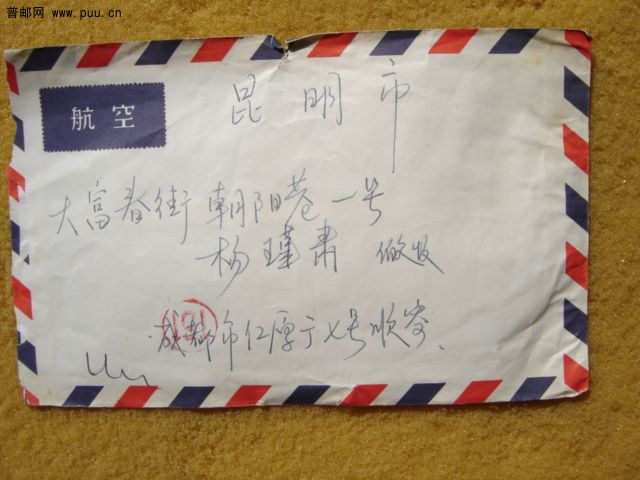 普邮网 www.puu.cn
航空
昆明市
大富春街朝阳巷一号
杨瑾肃 收
成都市仁厚 七号顺寄